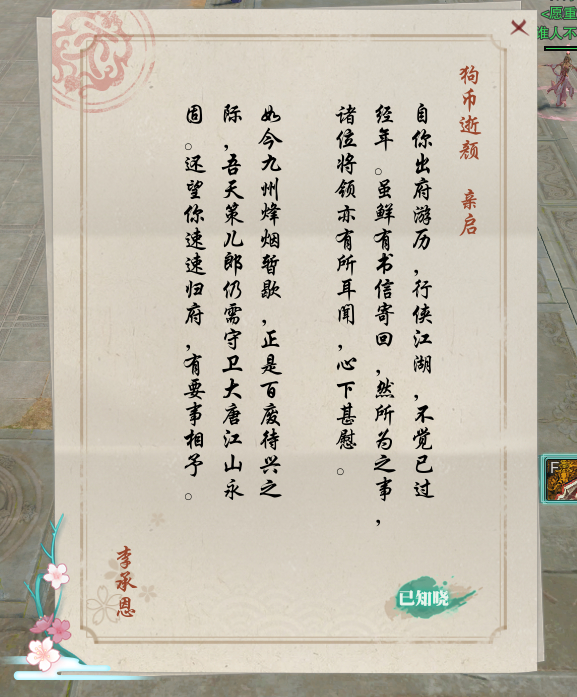 狗币逝颜 亲启
自你出府游历,行侠江湖,不觉已过
经年。虽鲜有书信寄回,然所为之事,
诸位将领亦有所耳闻,心下甚慰。
如今九州烽烟暂歇,正是百废待兴之
际,吾天策儿郎仍需守卫大唐江山永
固。还望你速速归府,有要事相予。
李承恩
已知晓
<愿重
准人不
F